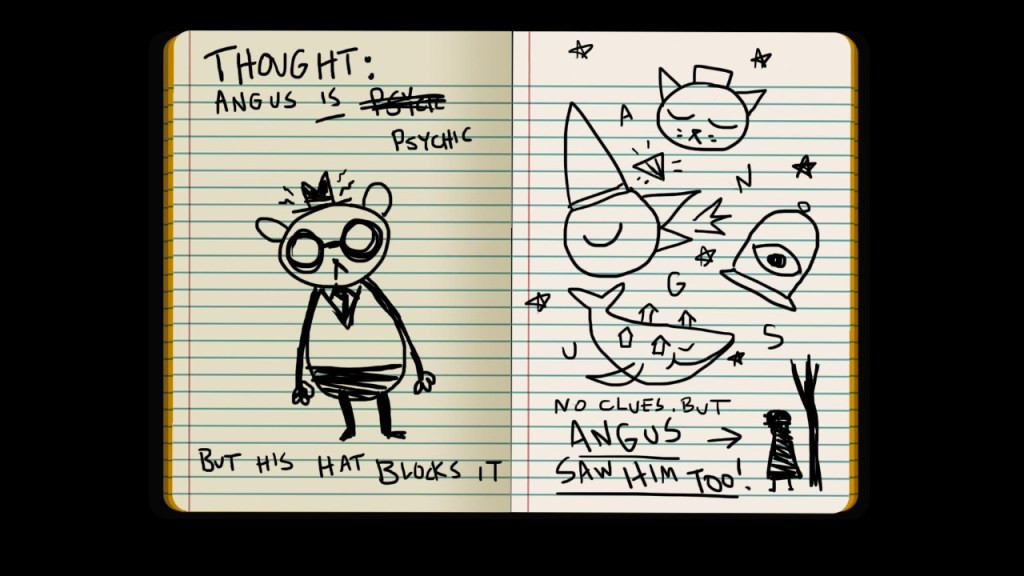 THOUGHT:
ANGUS IS
PSYCHIC
BUT HIS HAT BLOCKS IT
A
N
G
U
S
NO CLUES. BUT
ANGUS →
SAW HIM TOO!